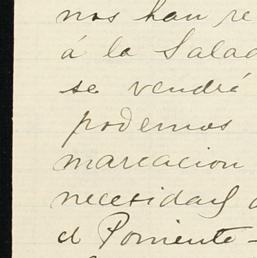 nos han re
á la Salad
se vendrá
podemos
marcacion
necesidad d
el Poniente -